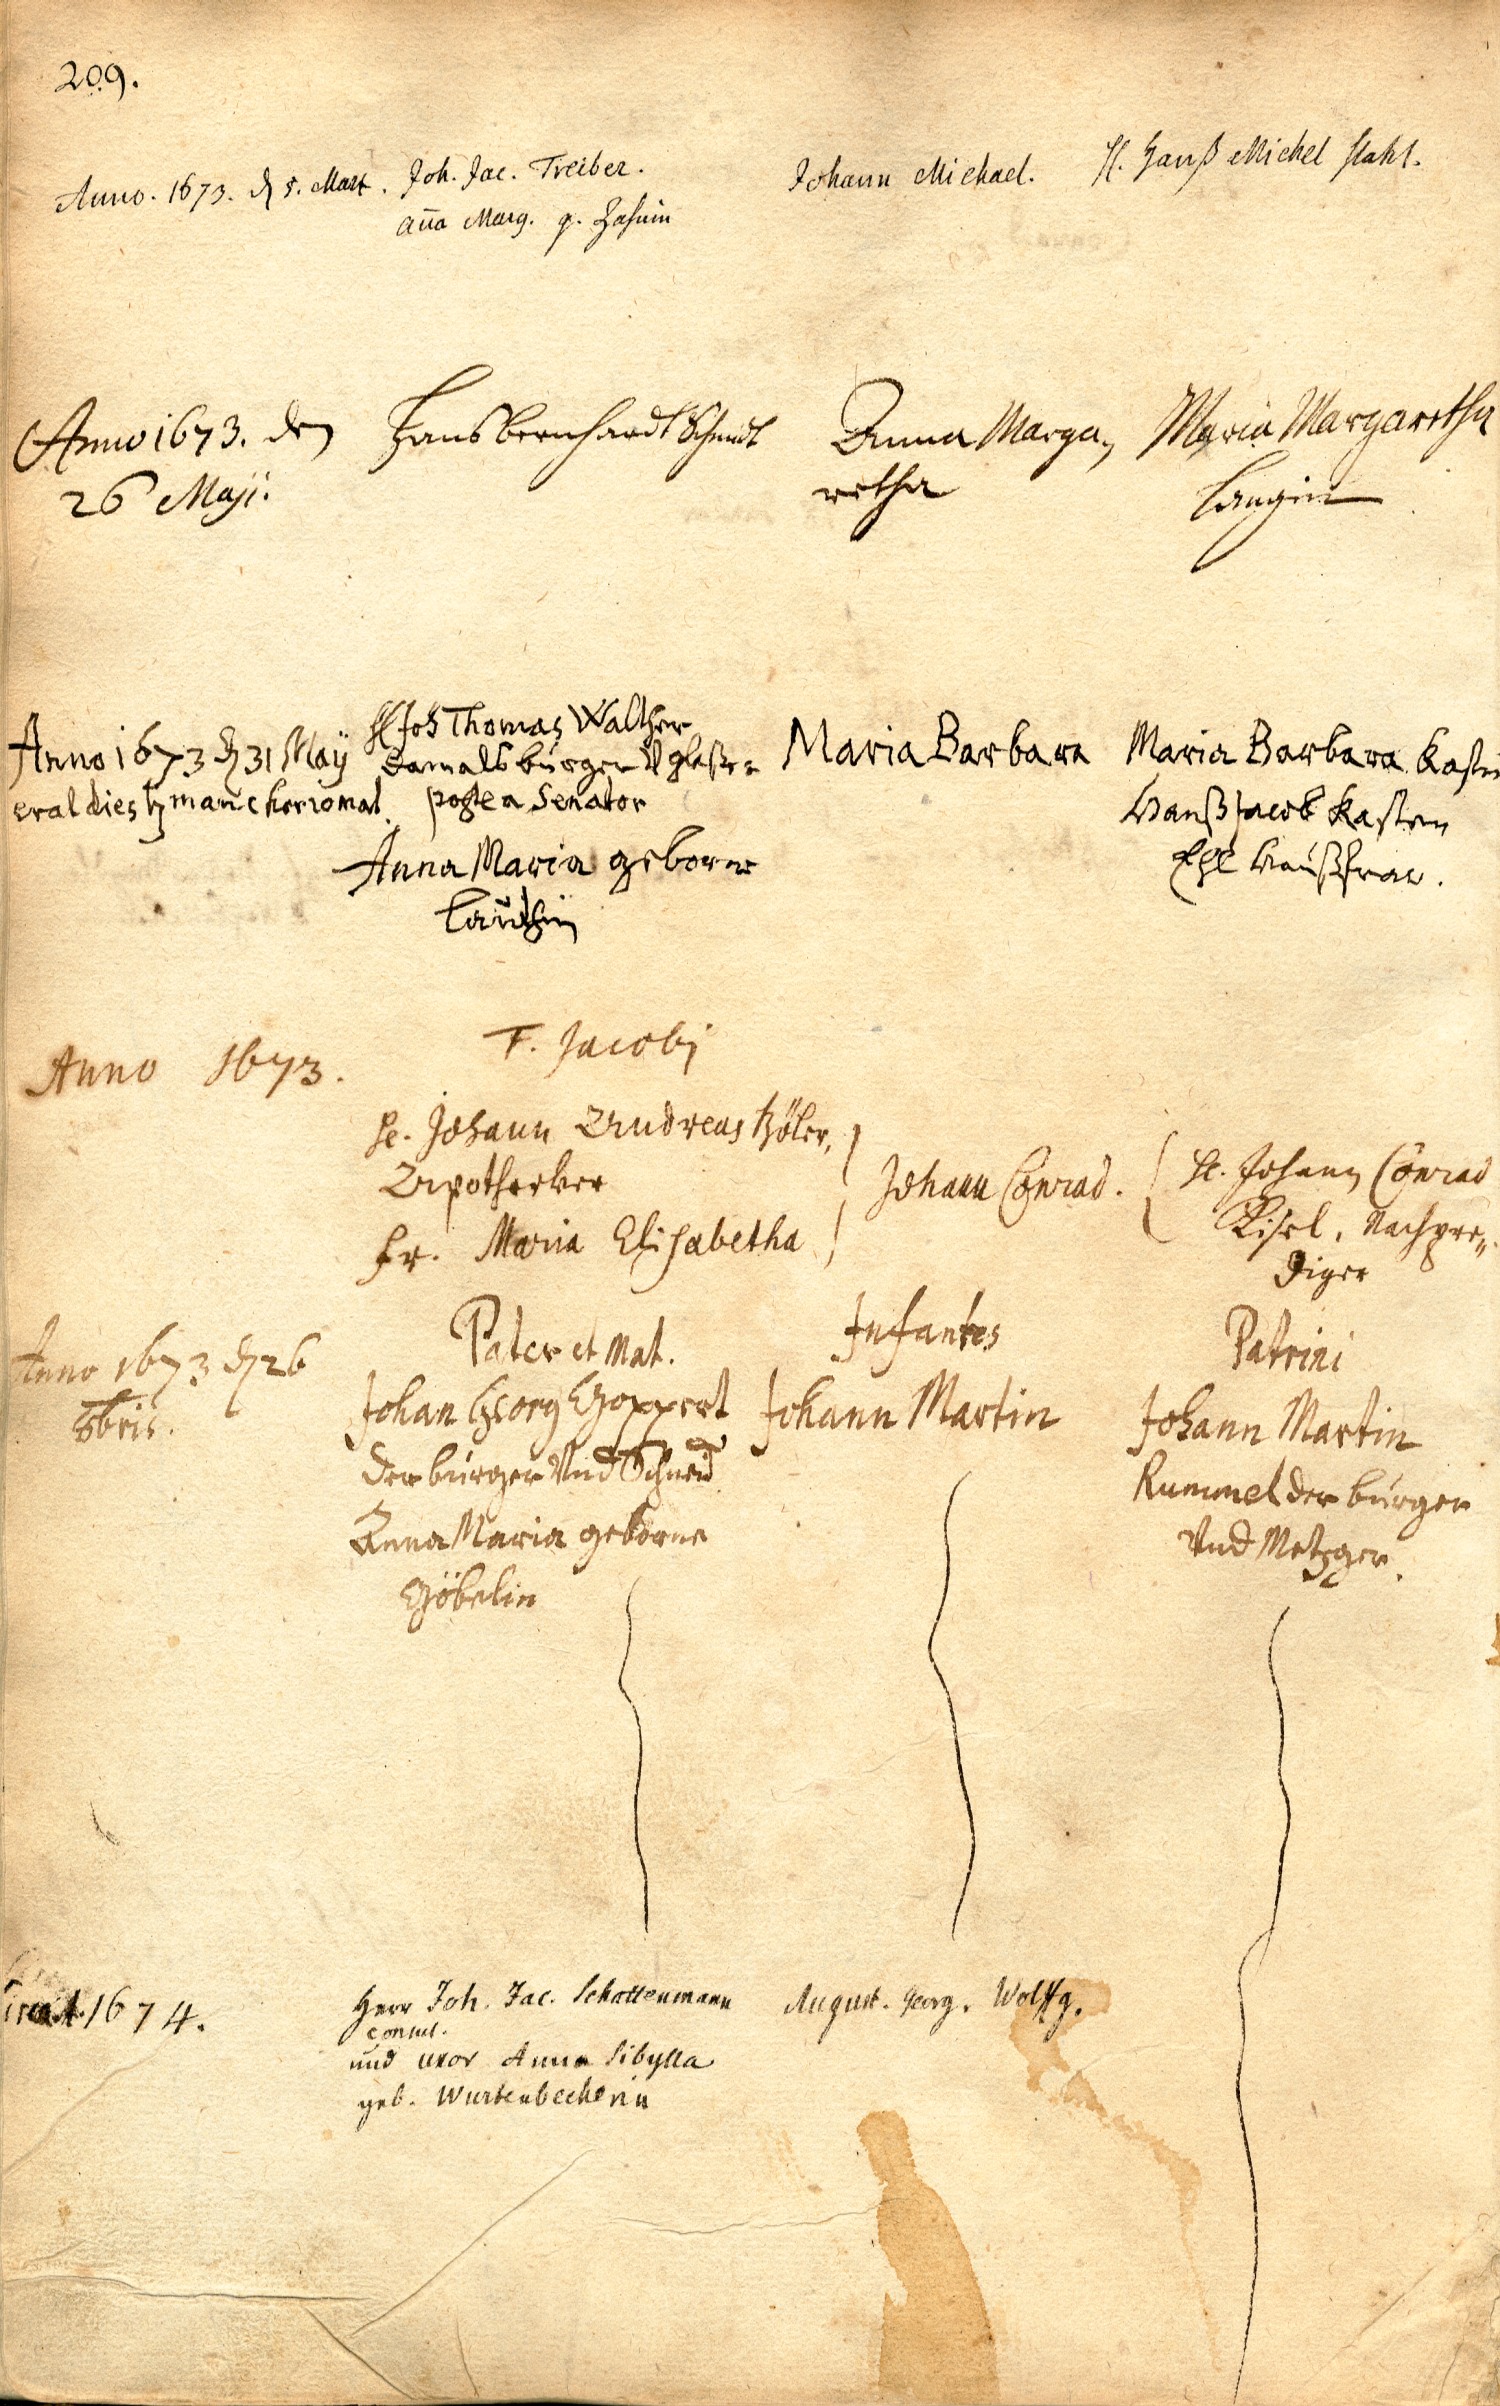 209.
Anno. 1673. d 5. Mart. Joh. Jac. Treiber. Johann Michael. H. Hanß Michel Stahl.
aña Marg. g. Hasnin
Anno 1673. den Hans bernhardt Schmidt Anna Marga, Maria Margaretha
26 Maji. retha Langin
H Joh Thomas Walther
Anno 1673 d 31 May damals burger V glaßer Maria Barbara Maria Barbara Kastin
erat dies postea Senator Hanß Jacob Kasten
Anna Maria geborne Ehl haußfraw.
Anno 1673. F. Jacobj
He. Johann Andreas
Apothecker Johann Conrad. He. Johann Conrad
Fr. Maria Elisabetha Risel, Nachpre„
diger
Pater et Mat. Infantes Patrini
Anno 1673 d 26 Johan Georg Goppert Johann Martin Johann Martin
8bris. der burger Vnd Schneid Rummel der burger
Anna Maria geborne Vnd Metzger.
Göbelin
1674. Herr Joh. Jac. Schattenmann August. Georg. Wolffg.
consul.
und uxor Anna Sibylla
geb. Wurtenbecherin